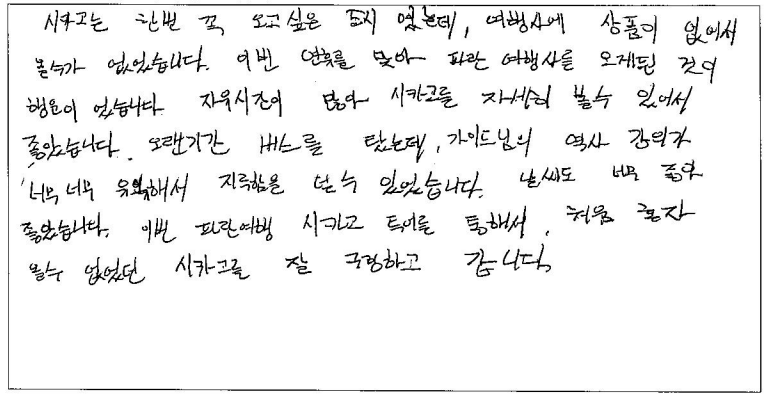 시카고는 한번 꼭 오고싶은 도시 였는데, 여행사에 상품이 없어서
올수가 없었습니다. 이번 연휴를 맞아 파란 여행사를 오게된 것이
행운이 었습니다. 자유시간이 많아 시카고를 자세히 볼수 있어서
좋았습니다. 오랜기간 버스를 탔는데, 가이드님의 역사 강의가
너무 너무 유익해서 지루함을 덜 수 있었습니다. 날씨도 너무 좋아
좋았습니다. 이번 파란여행 시카고 투어를 통해서, 처음 혼자
올수 없었던 시카고를 잘 구경하고 갑니다.